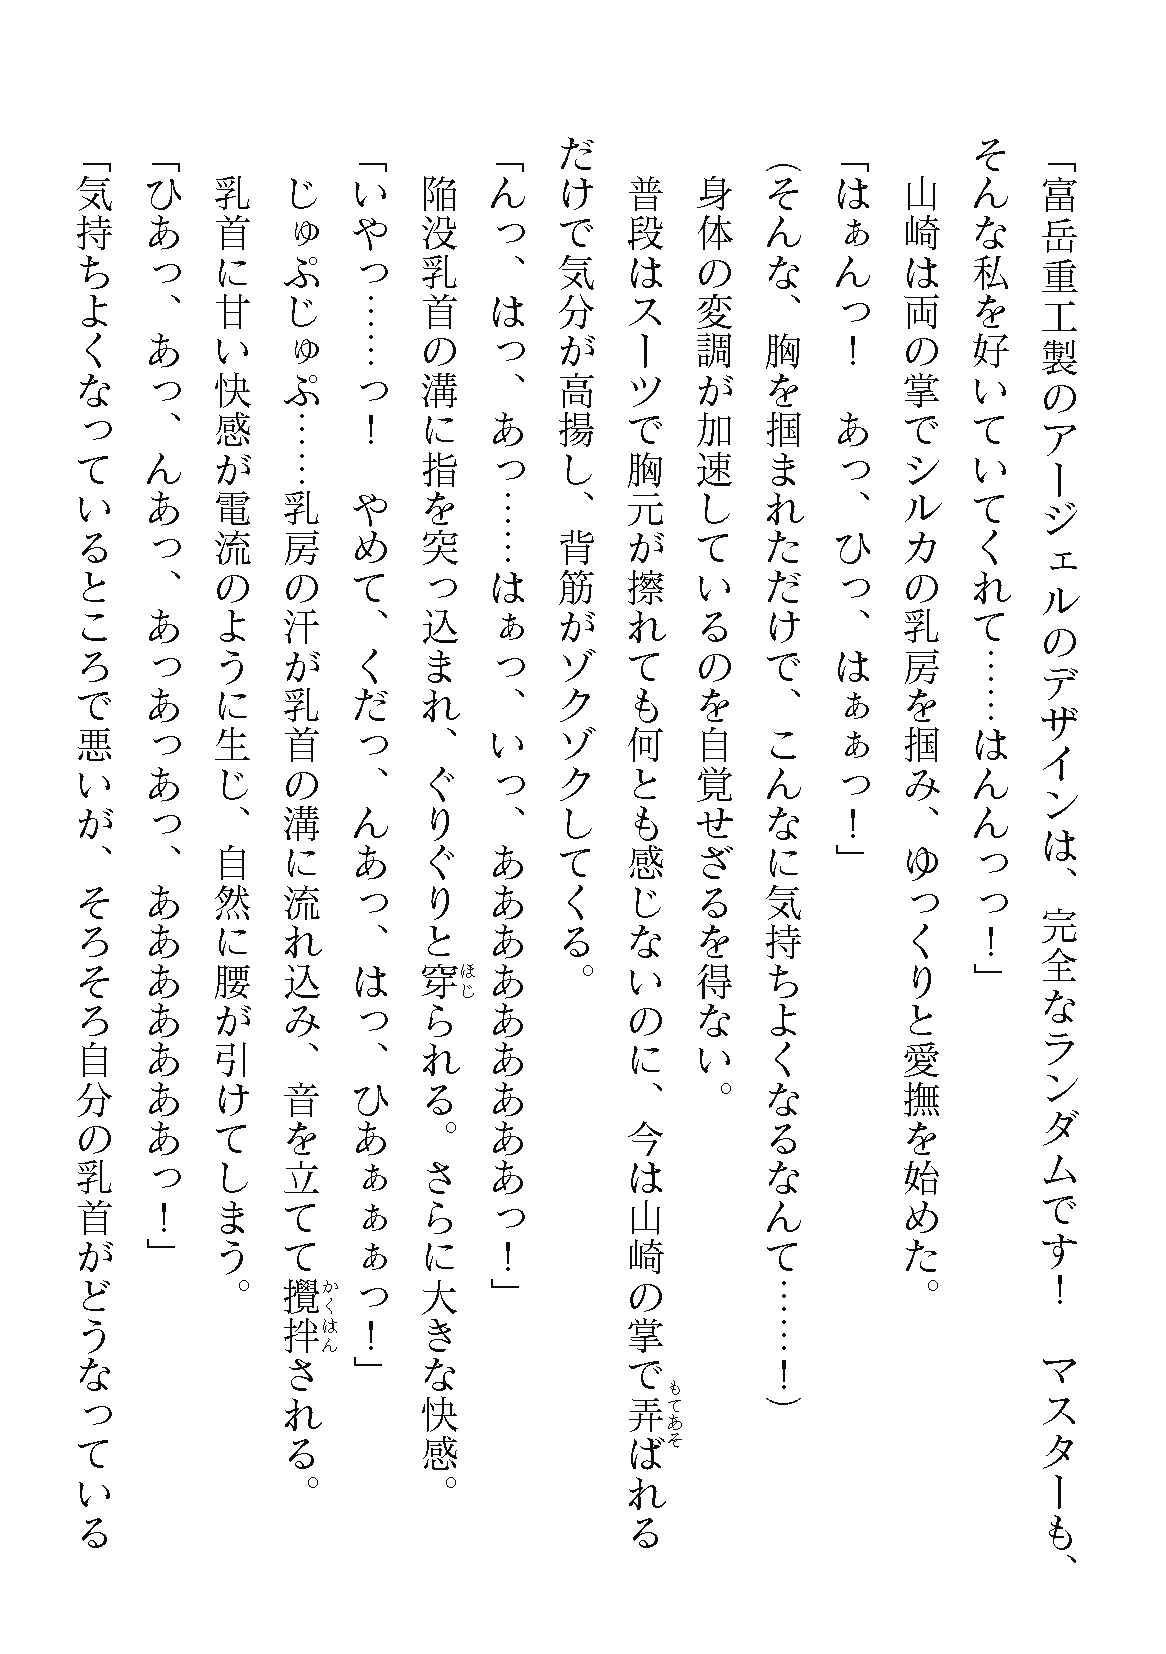 「富岳重工製のアージェルのデザインは、完全なランダムです！　マスターも、
そんな私を好いていてくれて……はんんっっ！」
山崎は両の掌でシルカの乳房を掴み、ゆっくりと愛撫を始めた。
「はぁんっ！　あっ、ひっ、はぁぁっ！」
（そんな、胸を掴まれただけで、こんなに気持ちよくなるなんて……！）
身体の変調が加速しているのを自覚せざるを得ない。
普段はスーツで胸元が擦れても何とも感じないのに、今は山崎の掌で弄ばれる
もてあそ
だけで気分が高揚し、背筋がゾクゾクしてくる。
「んっ、はっ、あっ……はぁっ、いっ、あああああああああっ！」
陥没乳首の溝に指を突っ込まれ、ぐりぐりと穿られる。さらに大きな快感。
ほじ
「いやっ……っ！　やめて、くだっ、んあっ、はっ、ひあぁぁぁっ！」
じゅぷじゅぷ……乳房の汗が乳首の溝に流れ込み、音を立てて攪拌される。
かくはん
乳首に甘い快感が電流のように生じ、自然に腰が引けてしまう。
「ひあっ、あっ、んあっ、あっあっあっ、あああああああっ！」
「気持ちよくなっているところで悪いが、そろそろ自分の乳首がどうなっている